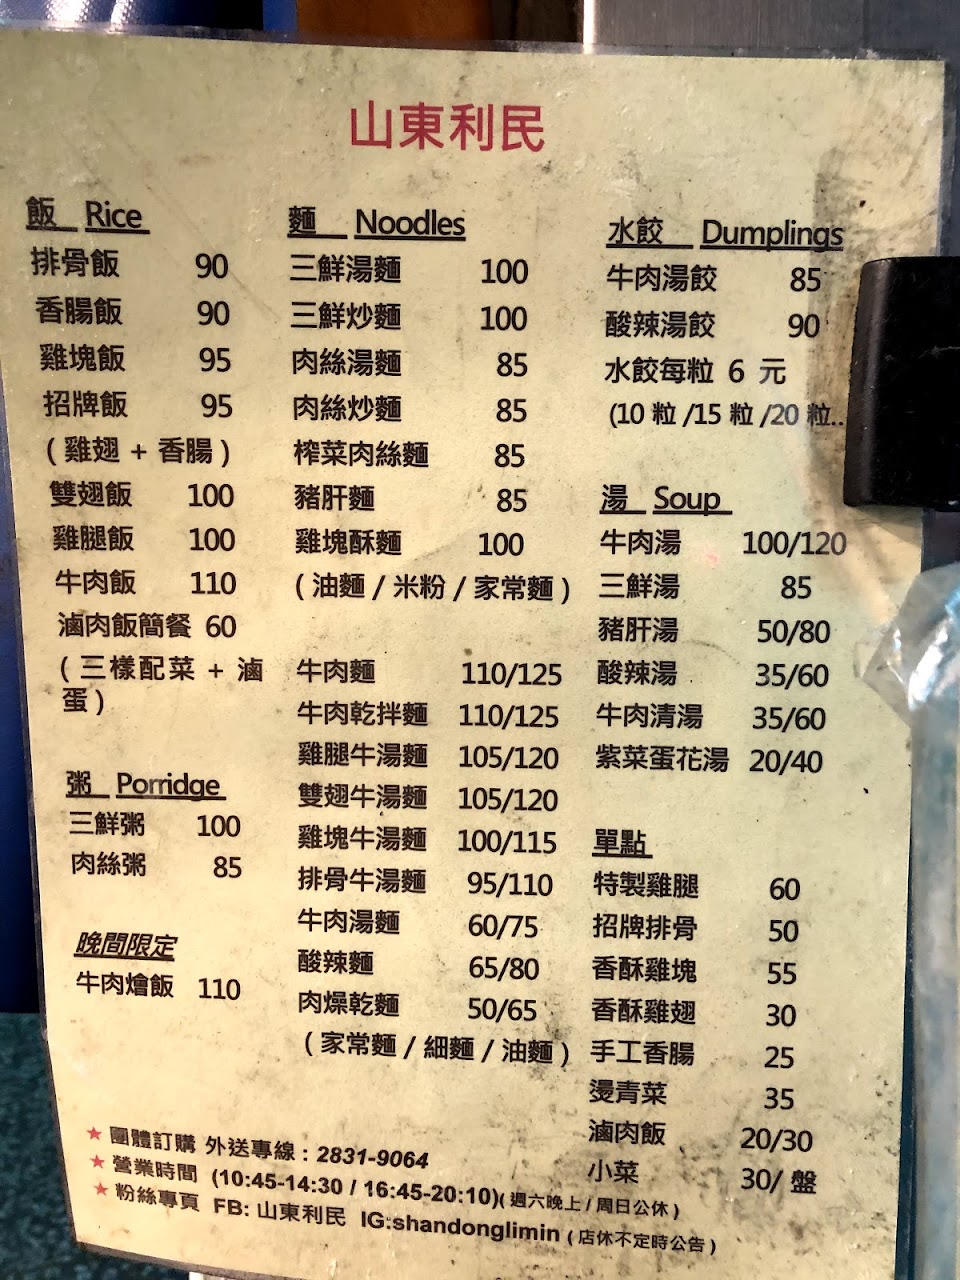 山東利民
飯 Rice
排骨飯 90
香腸飯 90
雞塊飯 95
招牌飯 95
(雞翅 + 香腸)
雙翅飯 100
雞腿飯 100
牛肉飯 110
滷肉飯簡餐 60
(三樣配菜 + 滷
蛋)
粥 Porridge
三鮮粥 100
肉絲粥 85
晚間限定
牛肉燴飯 110
麵 Noodles
三鮮湯麵 100
三鮮炒麵 100
肉絲湯麵 85
肉絲炒麵 85
榨菜肉絲麵 85
豬肝麵 85
雞塊酥麵 100
(油麵 / 米粉 / 家常麵)
牛肉麵 110/125
牛肉乾拌麵 110/125
雞腿牛湯麵 105/120
雙翅牛湯麵 105/120
雞塊牛湯麵 100/115
排骨牛湯麵 95/110
牛肉湯麵 60/75
酸辣麵 65/80
肉燥乾麵 50/65
(家常麵 / 細麵 / 油麵)
水餃 Dumplings
牛肉湯餃 85
酸辣湯餃 90
水餃每粒 6 元
(10 粒 /15 粒 /20 粒..
湯 Soup
牛肉湯 100/120
三鮮湯 85
豬肝湯 50/80
酸辣湯 35/60
牛肉清湯 35/60
紫菜蛋花湯 20/40
單點
特製雞腿 60
招牌排骨 50
香酥雞塊 55
香酥雞翅 30
手工香腸 25
燙青菜 35
滷肉飯 20/30
小菜 30/ 盤
★ 團體訂購 外送專線 : 2831-9064
★ 營業時間 (10:45-14:30 / 16:45-20:10)( 週六晚上 / 周日公休 )
★ 粉絲專頁 FB: 山東利民 IG:shandonglimin ( 店休不定時公告 )